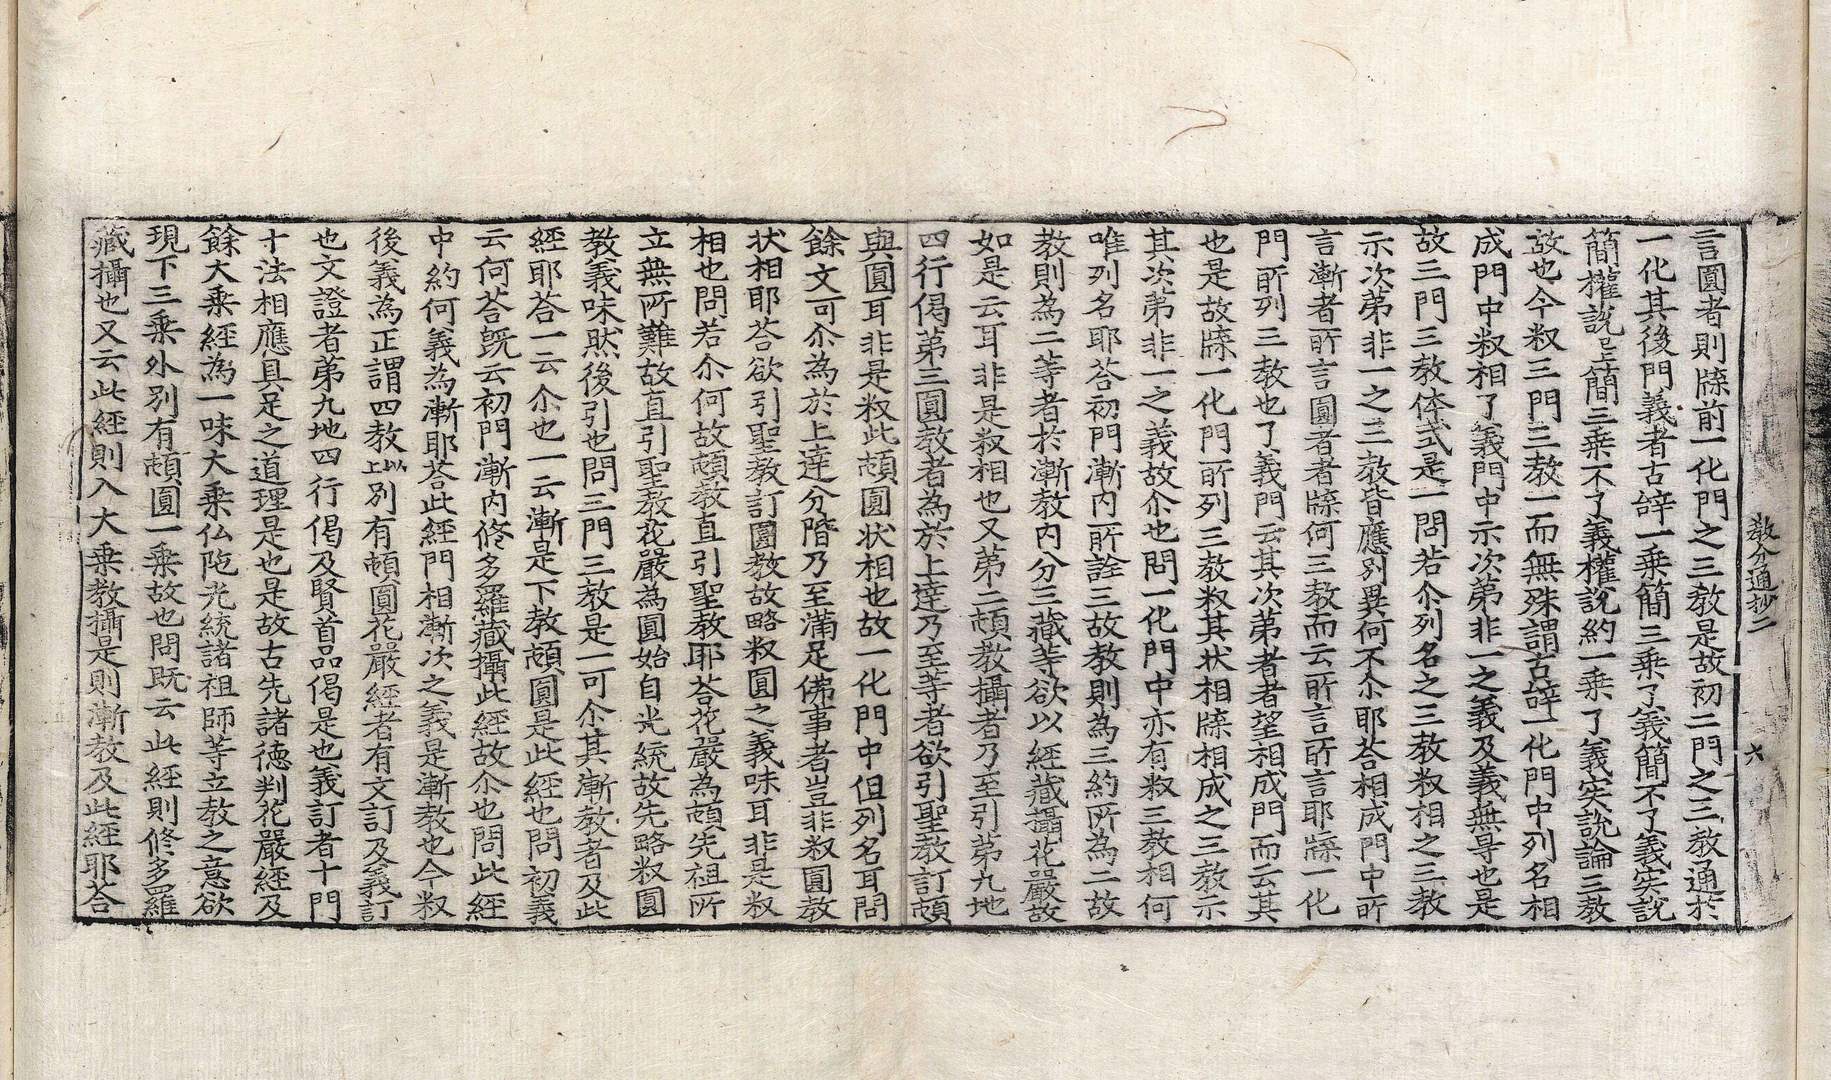 教分通抄二
六
言圓者則牒前一化門之三教是故初二門之三教通於
一化其後門義者古辝一乗簡三乗了義簡不了義実說
簡權說已上簡三乗不了義權說約一乗了義実說論三教
故也今叙三門三教一而無殊謂古辝一化門中列名相
成門中叙相了義門中示次第非一之義及義無㝵也是
故三門三教体式是一問若尒列名之三教叙相之三教
示次第非一之三教皆應別異何不尒耶荅相成門中所
言漸者所言圓者者牒何三教而云所言所言耶牒一化
門所列三教也了義門云其次第者者望相成門而云其
也是故牒一化門所列三教叙其状相牒相成之三教示
其次第非一之義故尒也問一化門中亦有叙三教相何
唯列名耶荅初門漸内所詮三故教則為三約所為二故
教則為二等者於漸教内分三藏等欲以經藏攝花嚴故
如是云耳非是叙相也又第二頓教攝者乃至引第九地
四行偈第三圓教者為於上達乃至等者欲引聖教訂頓
與圓耳非是叙此頓圓状相也故一化門中但列名耳問
餘文可尒為於上達分階乃至滿足佛事者豈非叙圓教
状相耶荅欲引聖教訂圓教故略叙圓之義味耳非是叙
相也問若尒何故頓教直引聖教耶荅花嚴為頓先祖所
立無所難故直引聖教花嚴為圓始自光統故先略叙圓
教義味然後引也問三門三教是一可尒其漸教者及此
經耶荅一云尒也一云漸是下教頓圓是此經也問初義
云何荅旣云初門漸内修多羅藏攝此經故尒也問此經
中約何義為漸耶荅此經門相漸次之義是漸教也今叙
後義為正謂四教上以別有頓圓花嚴經者有文訂及義訂
也文證者第九地四行偈及賢首品偈是也義訂者十門
十法相應具足之道理是也是故古先諸德判花嚴經及
餘大乗經為一味大乗仏陁光統諸祖師等立教之意欲
現下三乗外別有頓圓一乗故也問既云此經則修多羅
藏攝也又云此經則入大乗教攝是則漸教及此經耶荅